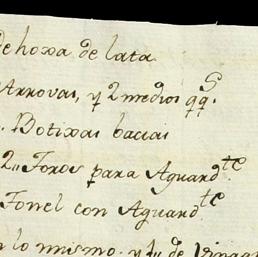 de hoxa de lata
Arrovas, y 2 medios qq.s
Botixas bacias
2,, Foros para Aguard.te
Fonel con Aguard.te
lo mismo. y de Vinag